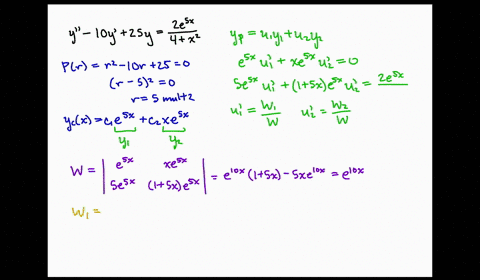 y'' - 10y' + 25y = 2e^{5x} / (4 + x^2)
P(r) = r^2 - 10r + 25 = 0
(r - 5)^2 = 0
r = 5 mult 2
y_c(x) = c_1 e^{5x} + c_2 x e^{5x}
y_1 y_2
y_p = u_1 y_1 + u_2 y_2
e^{5x} u_1' + x e^{5x} u_2' = 0
5e^{5x} u_1' + (1+5x) e^{5x} u_2' = 2e^{5x}
u_1' = W_1 / W u_2' = W_2 / W
W = | e^{5x} xe^{5x} |
| 5e^{5x} (1+5x)e^{5x} | = e^{10x} (1+5x) - 5x e^{10x} = e^{10x}
W_1 =